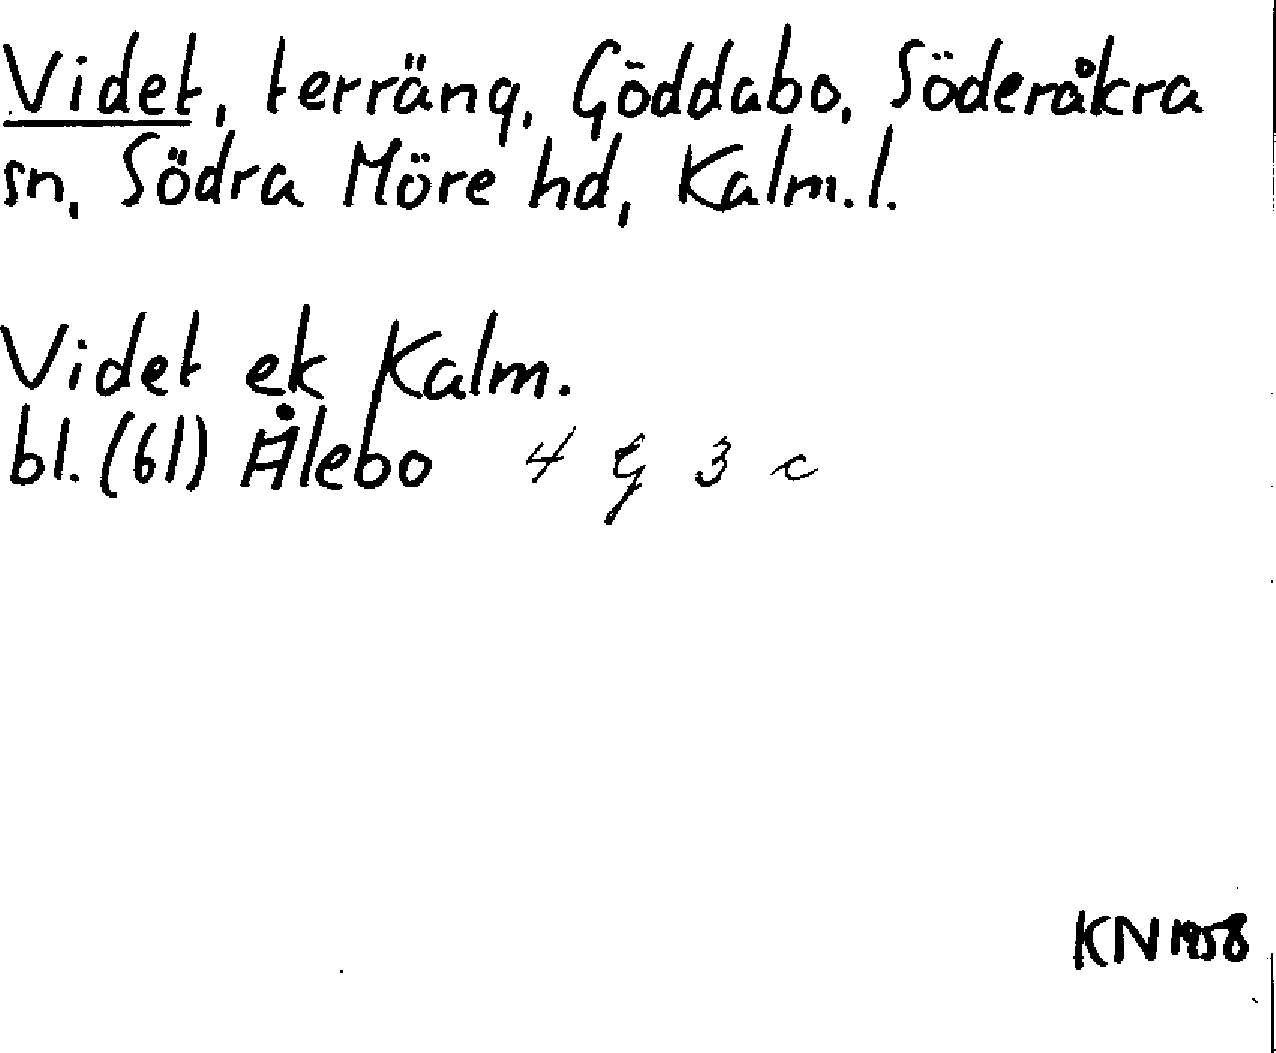 Videt, terräng, Göddabo, Söderåkra
sn, Södra Möre hd, Kalm. l.
Videt ek Kalm.
bl. (61) Ålebo 4 G 3 c
KN 1958